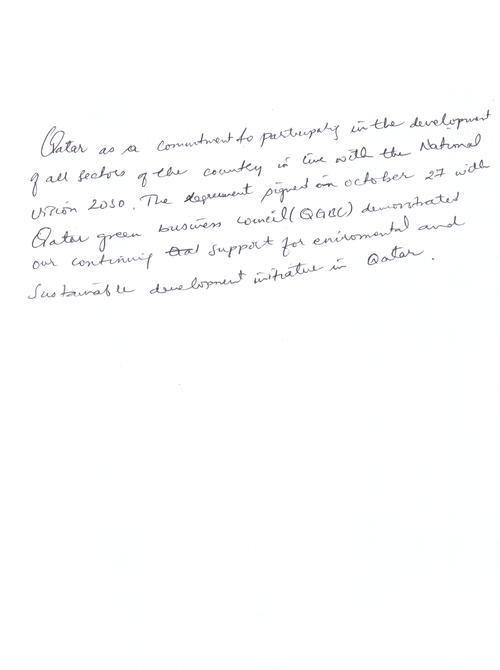 Qatar as a commitment to participatig in the development
of all sectors of the country in line with the National
vision 2030. The agreement signed on october 27 with
Qatar green business council (QGBC) demonstrated
our continuing support for enviromental and
Sustainable development initiative in Qatar.